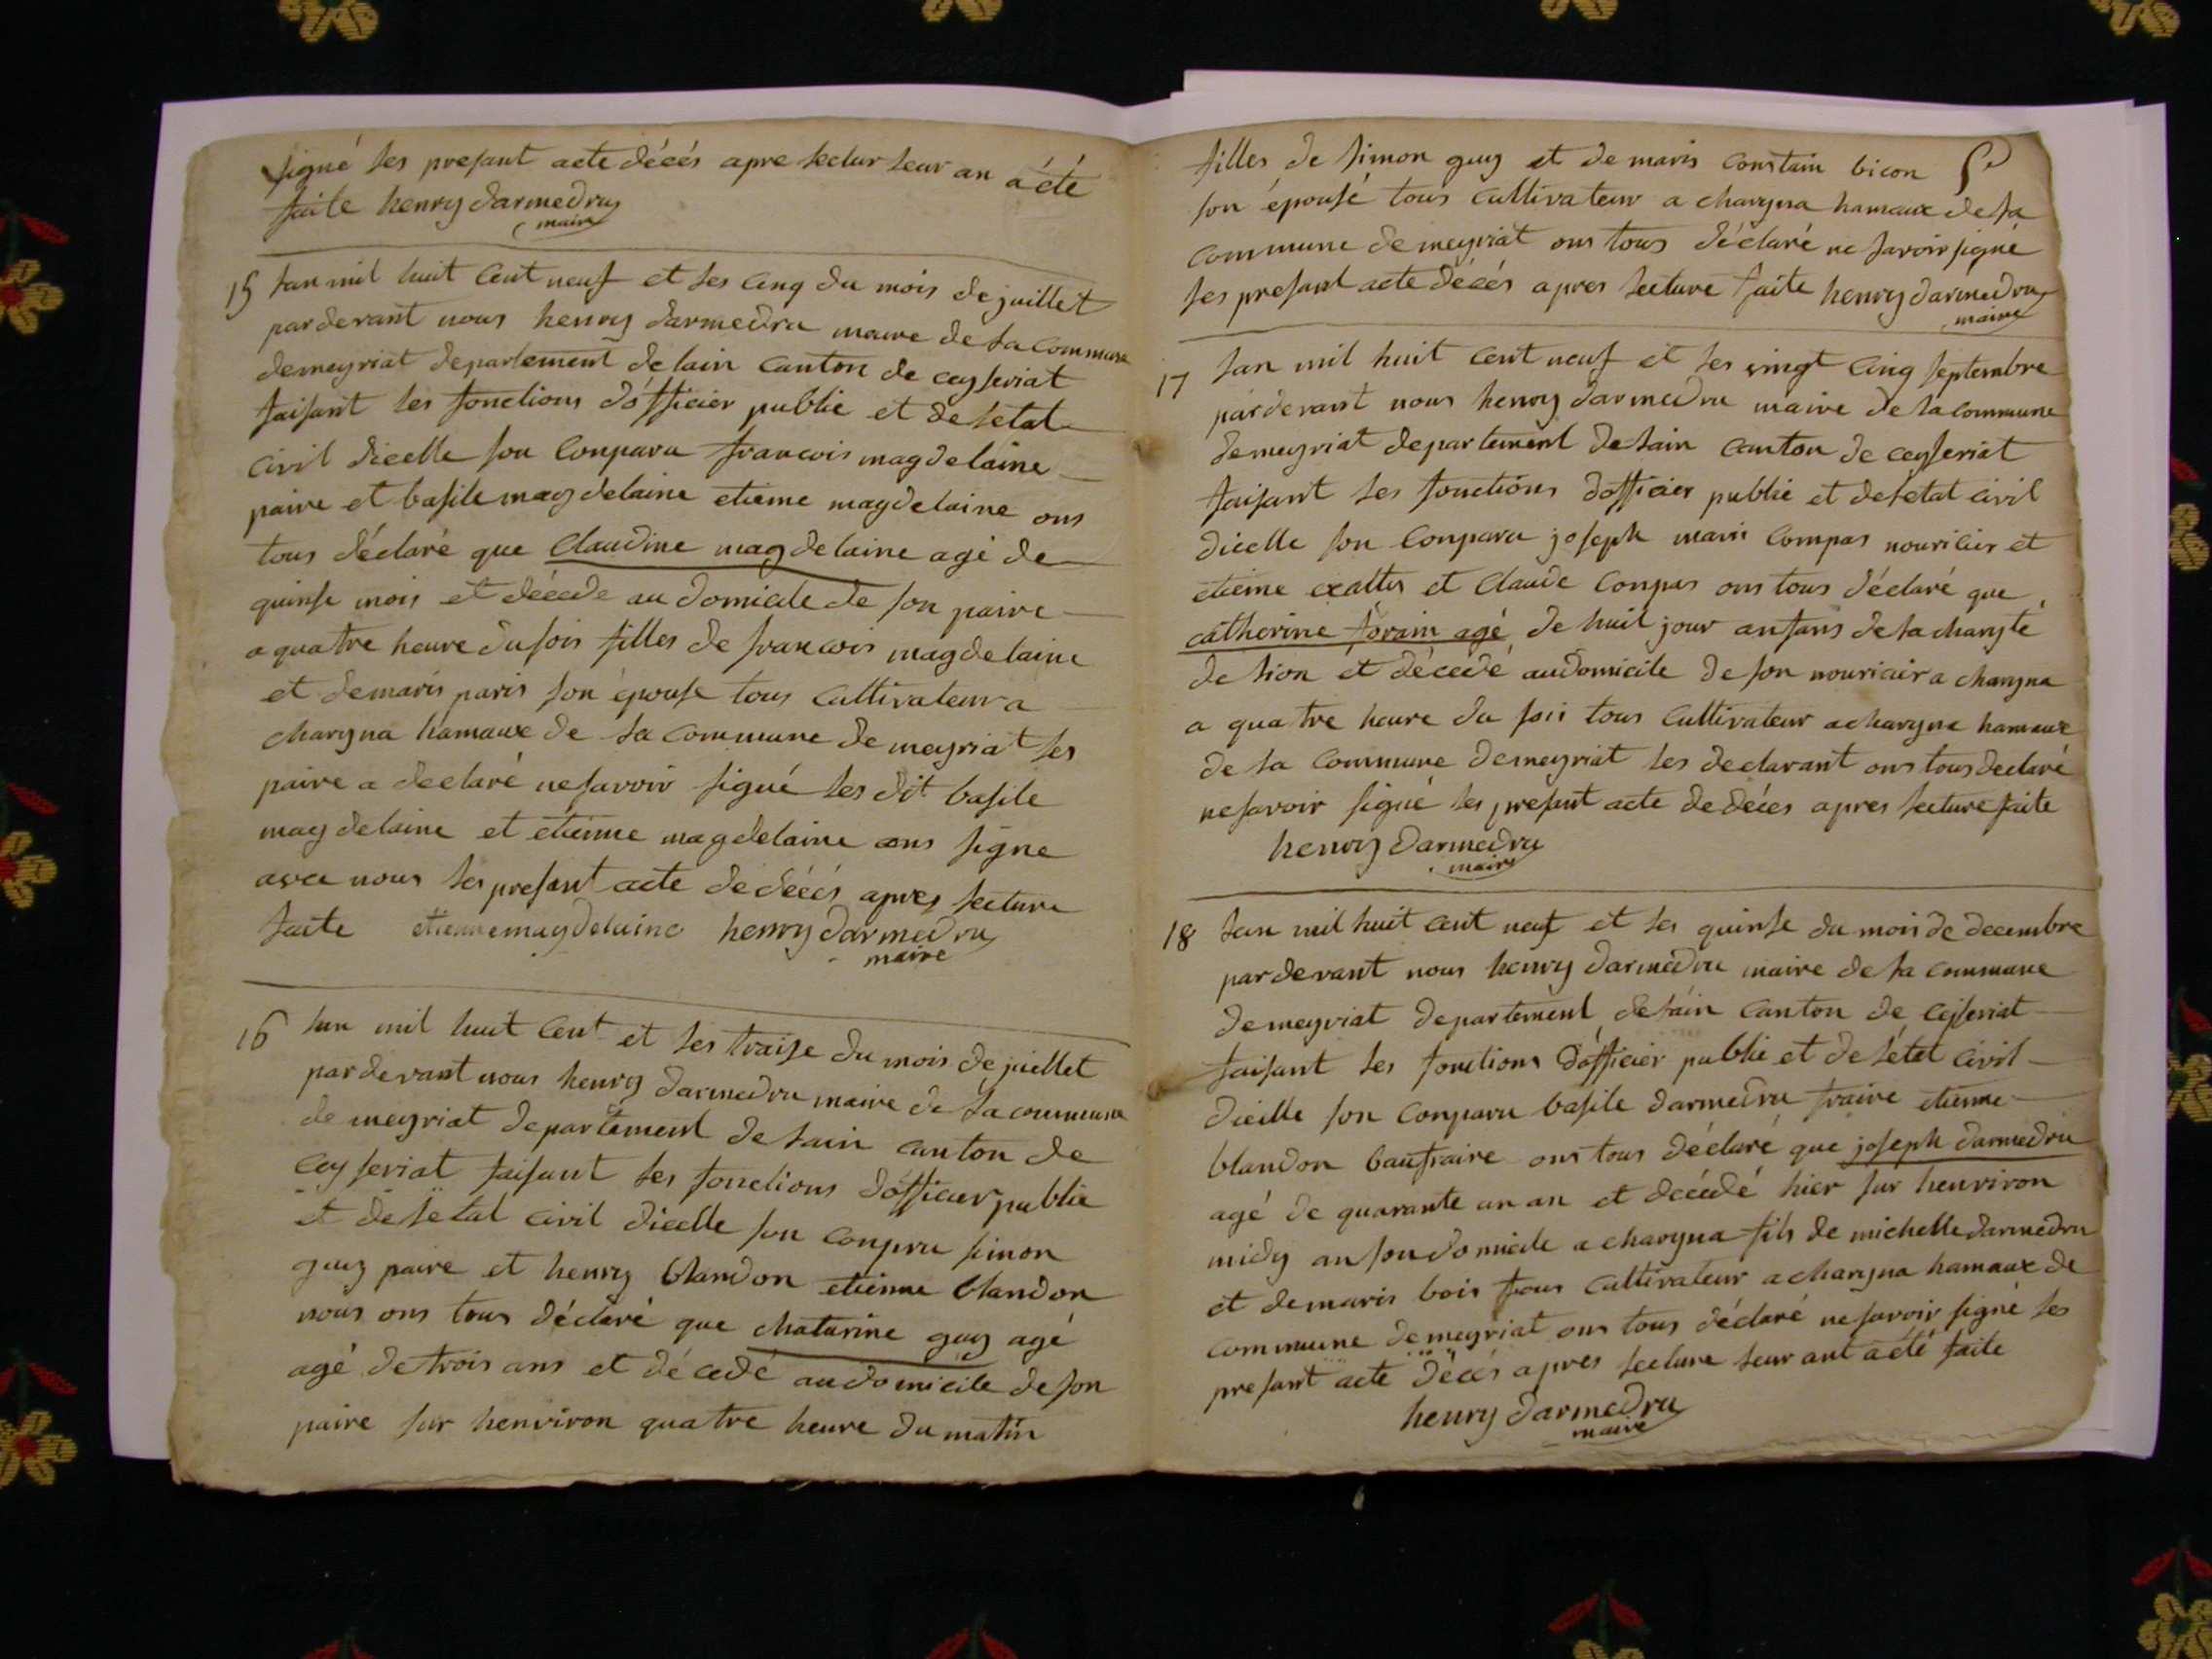 signé les presant acte décés apre lectur leur an àété
faite henry Darmedru
maire
15 lan mil huit Cent neuf et les Cinq du mois de juillet
par devant nous henry darmedru maire de la Commune
de meyriat departement de lain Canton de ceyseriat
faisant les fonctions d'officier public et de letat
Civil dicelle son Conparu francois magdelaine
paire et basile magdelaine etienne magdelaine ons
tous déclaré que Claudine magdelaine agé de
quinse mois et décedé au domicile de son paire
a quatre heure du soir filles de francois magdelaine
et de maris paris son épouse tous Cultivateur a
charyna hamaux de la Commune de meyriat les
paire a declaré ne savoir signé les dit basile
magdelaine et etienne magdelaine ons signe
avec nous les presant acte de décés apres lecture
faite etiennemagdelaine henry Darmedru
maire
16 lan mil huit Cent et les traise du mois de juillet
par devant nous henry darmedru maire de la commune
de meyriat departement de lain canton de
Ceyseriat faisant les fonctions d'officier public
et de létat civil dicelle son conpru simon
guy paire et henry blandon etienne blandon
nous ons tous déclaré que chatarine guy agé
agé de trois ans et décedé au domicile de son
paire sur henviron quatre heure du matin
filles de simon guy et de maris constain bicon
son épousé tous cultivateur a charyna hameaux de la
commune de meyriat ons tous déclaré ne savoir signé
les presant acte décés apres lecture faite henry darmedru
maire
17 lan mil huit cent neuf et les vingt Cinq septembre
par devant nous henry darmedru maire de la commune
de meyriat departement de lain canton de ceyseriat
faisant les fonctions dofficier public et de letat civil
dicelle son Conparu joseph maris Compas nouricier et
etienne exaltes et Claude Conpas ons tous déclaré que
catherine forain agé de huit jour anfans de la charyté
de lion et décedé au domicile de son nouriciera charyna
a quatre heure du soir tous Cultivateur a charyna hamaux
de la Commune de meyriat les declarant ons tous declaré
ne savoir signé les presant acte de décés apres lecture faite
henry Darmedru
maire
18 lan mil huit cent neuf et les quinse du mois de decembre
par devant nous henry darmedru maire de la commune
de meyriat departement de lain Canton de Ceyseriat
faisant les fonctions d'officier public et de létat Civil
dicelle son Conparu basile darmedru fraire etienne
blandon baufraire ons tous déclaré que joseph darmedru
agé de quarante un an et décédé hier sur henviron
midy an son domicile a charyna fils de michelle darmedru
et de maris bois tous cultivateur a charyna hamaux de
commune de meyriat ons tous déclaré ne savoir signé les
presant acte décés apres lecture leur ant àété faite
henry Darmedru
maire